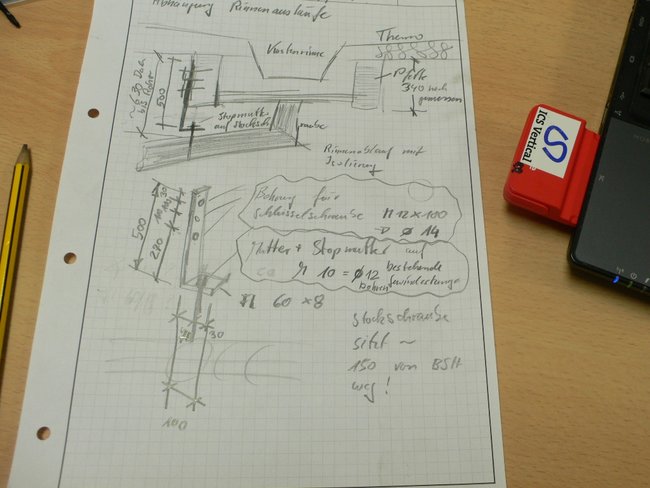 Abhängung Rinnenausläufe
Thermo
Kastenrinne
Pfette
340 nach
gemessen
500
~ 830 Dach
bis Rohr
Stopmutter
auf Stocksch.
Rinnenablauf mit
Isolierung
30
100
100
500
290
Bohrung für
Schlüsselschraube M 12 x 100
→ ø 14
Mutter + Stopmutter auf
ca M 10 = ø 12 bestehende
bohren Gewindestange
Fl 60 x 8
30
100
Stockschraube
sitzt ~
150 von BSH
weg!
ICS Vertical